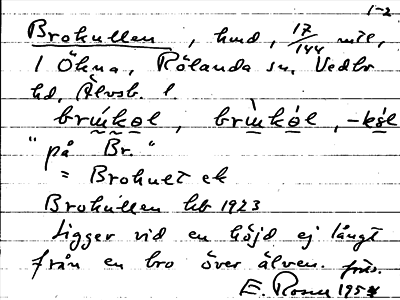 1-2
Brokullen, hmd, 17/144 mtl,
1 Ökna, Rölanda sn, Vedbo
hd, Älvsb. l.
brúkəl, brùkəl, -kəl
"på Br."
= Brokulet ek
Brokullen hb 1923
Ligger vid en höjd ej långt
från en bro över älven.
E. Rosen 1954